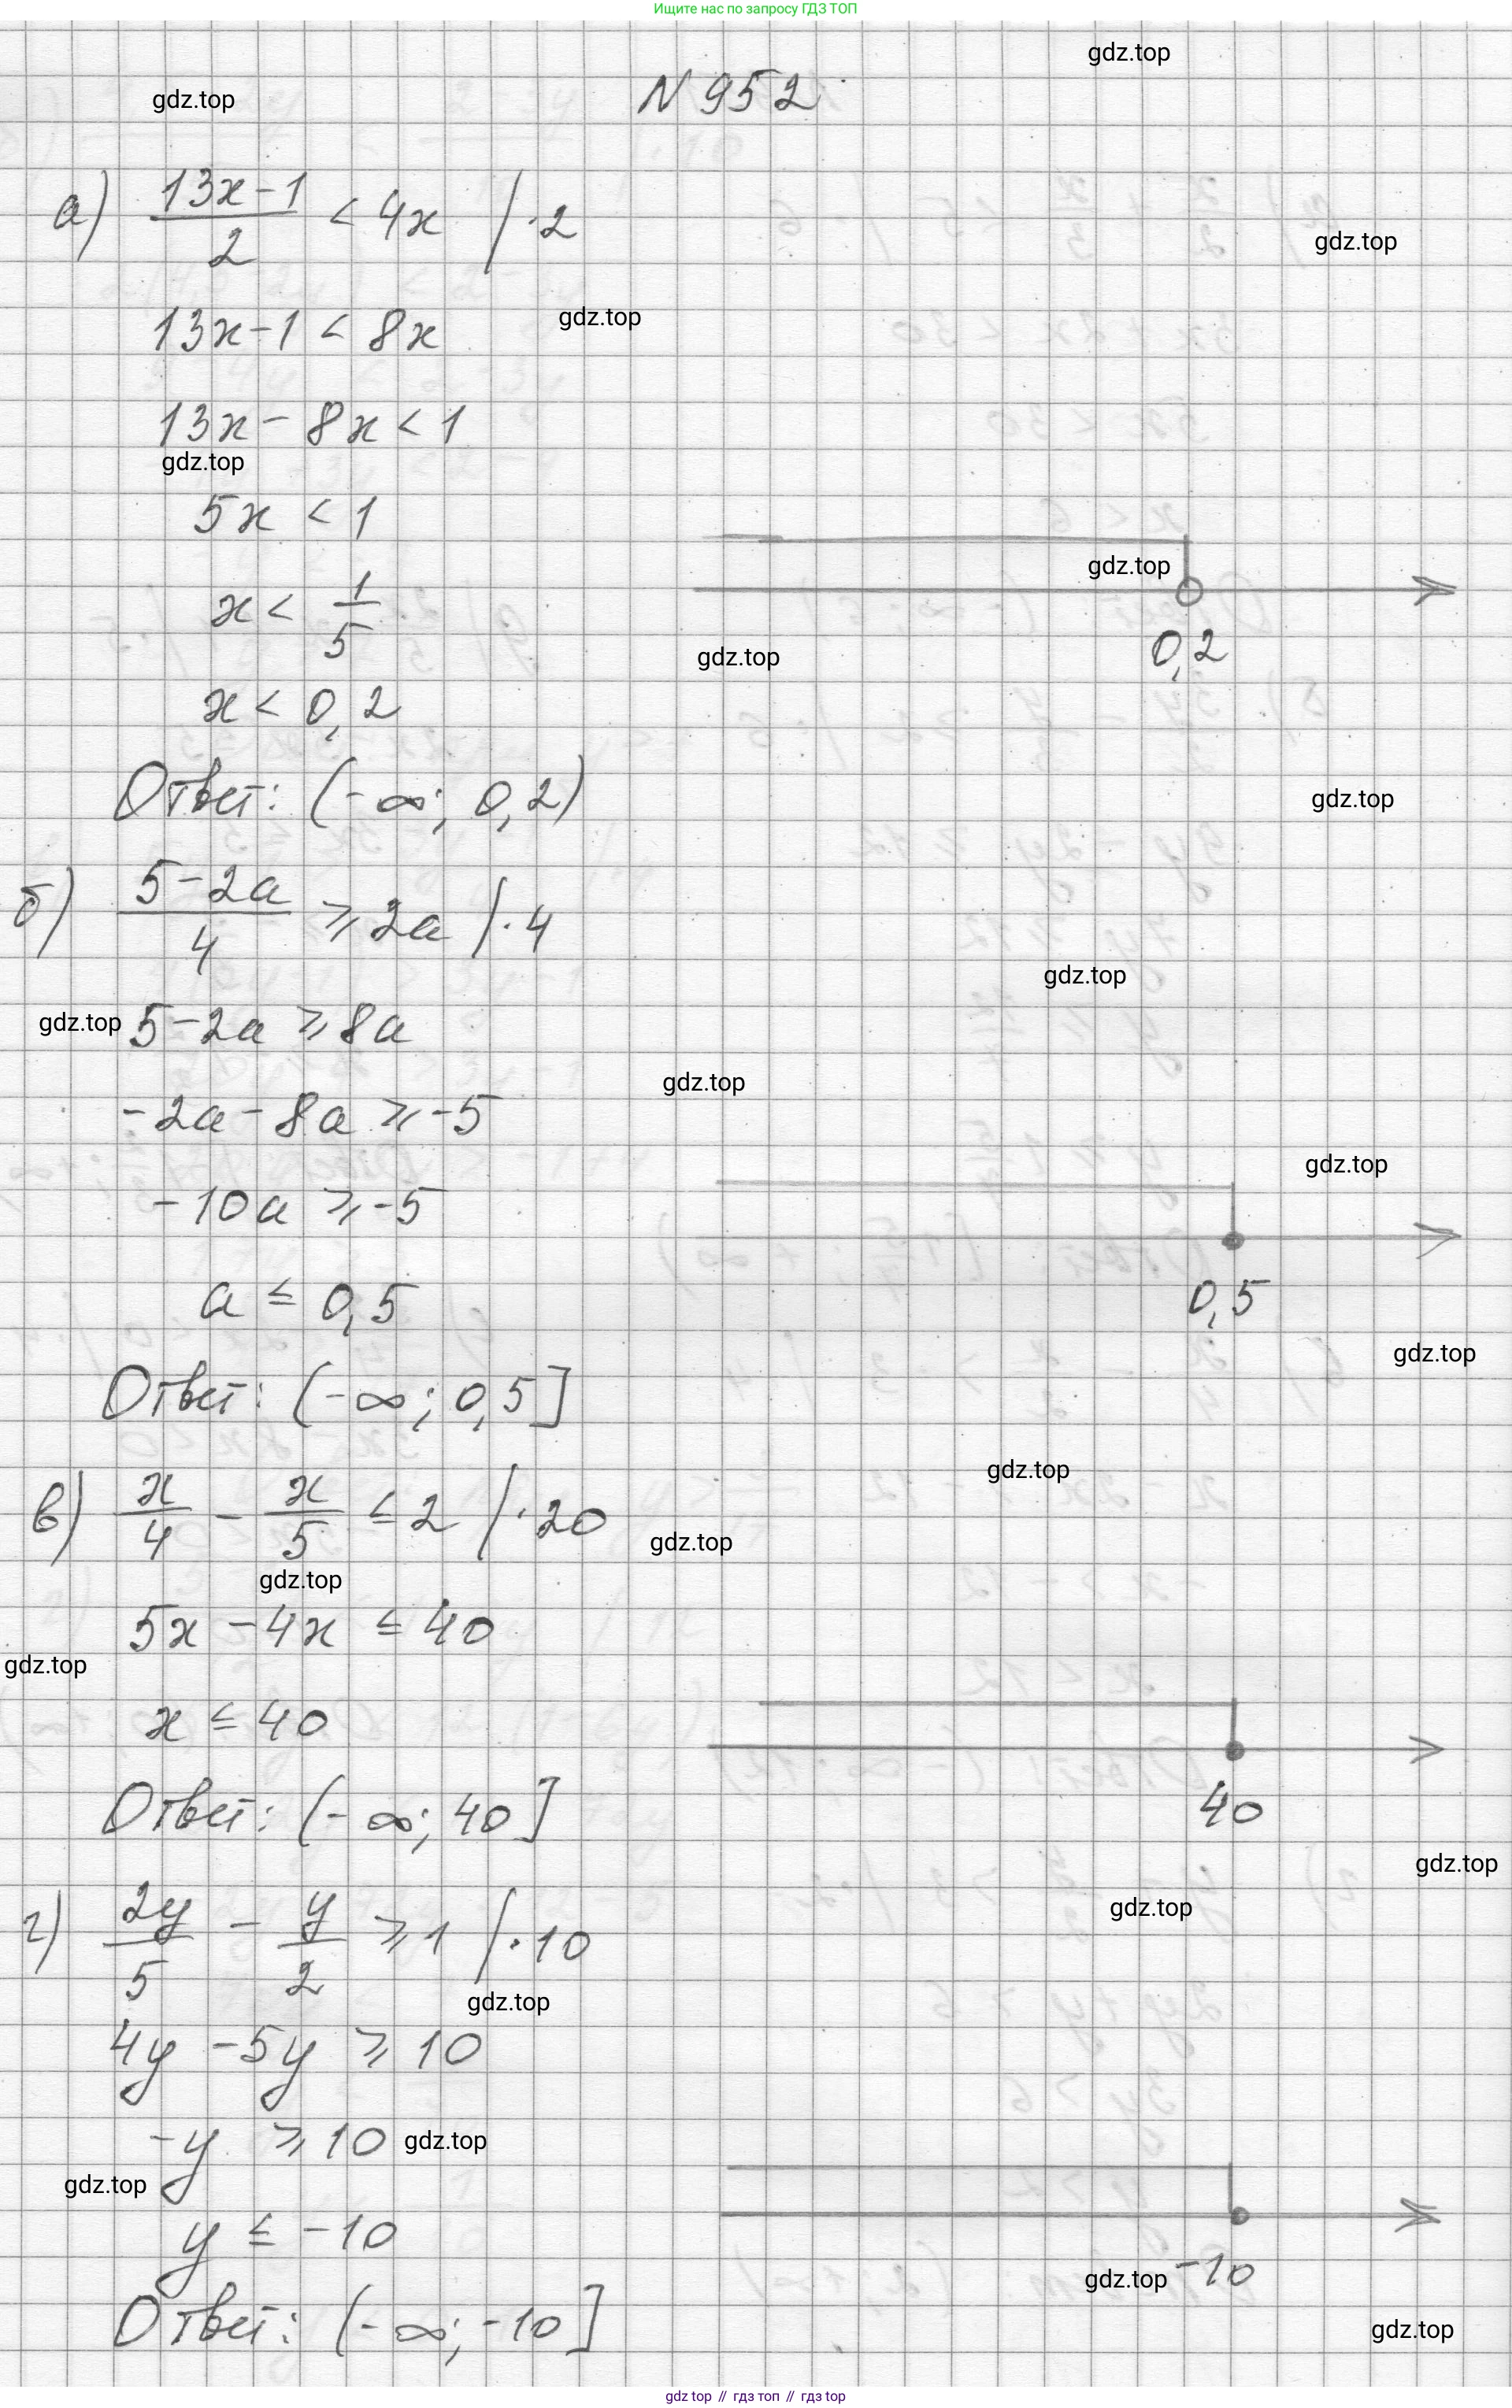 Ищите нас по запросу ГДЗ ТОП
gdz.top
gdz.top
N 952
а) (13x-1)/2 < 4x | ·2
gdz.top
13x-1 < 8x
gdz.top
13x - 8x < 1
gdz.top
5x < 1
gdz.top
x < 1/5
0,2
gdz.top
x < 0,2
Ответ: (-∞; 0,2)
gdz.top
б) (5-2a)/4 ⩾ 2a | ·4
gdz.top
gdz.top
5-2a ⩾ 8a
gdz.top
-2a - 8a ⩾ -5
gdz.top
-10a ⩾ -5
a ≤ 0,5
0,5
gdz.top
Ответ: (-∞; 0,5]
gdz.top
в) x/4 - x/5 ≤ 2 | ·20
gdz.top
gdz.top
5x - 4x ≤ 40
gdz.top
x ≤ 40
40
Ответ: (-∞; 40]
gdz.top
gdz.top
г) 2y/5 - y/2 ⩾ 1 | ·10
gdz.top
4y - 5y ⩾ 10
-y ⩾ 10
gdz.top
gdz.top
y ≤ -10
gdz.top
-10
Ответ: (-∞; -10]
gdz.top
gdz top // гдз топ // gdz top